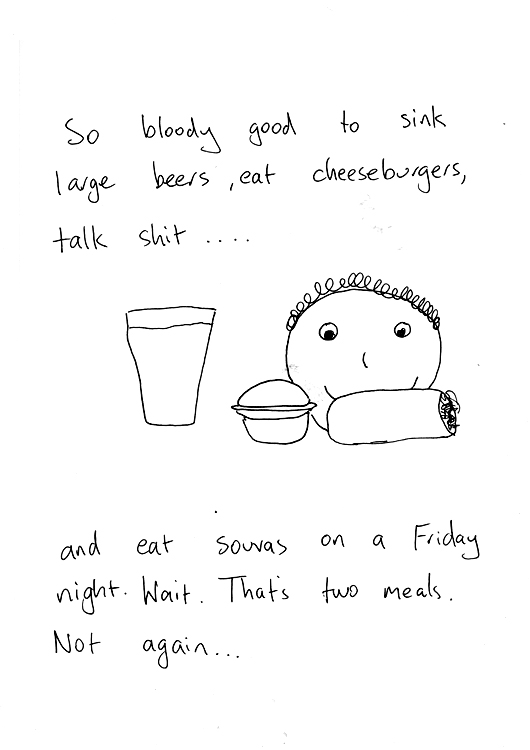 So bloody good to sink
large beers, eat cheeseburgers,
talk shit ....
and eat souvas on a Friday
night. Wait. That's two meals.
Not again...